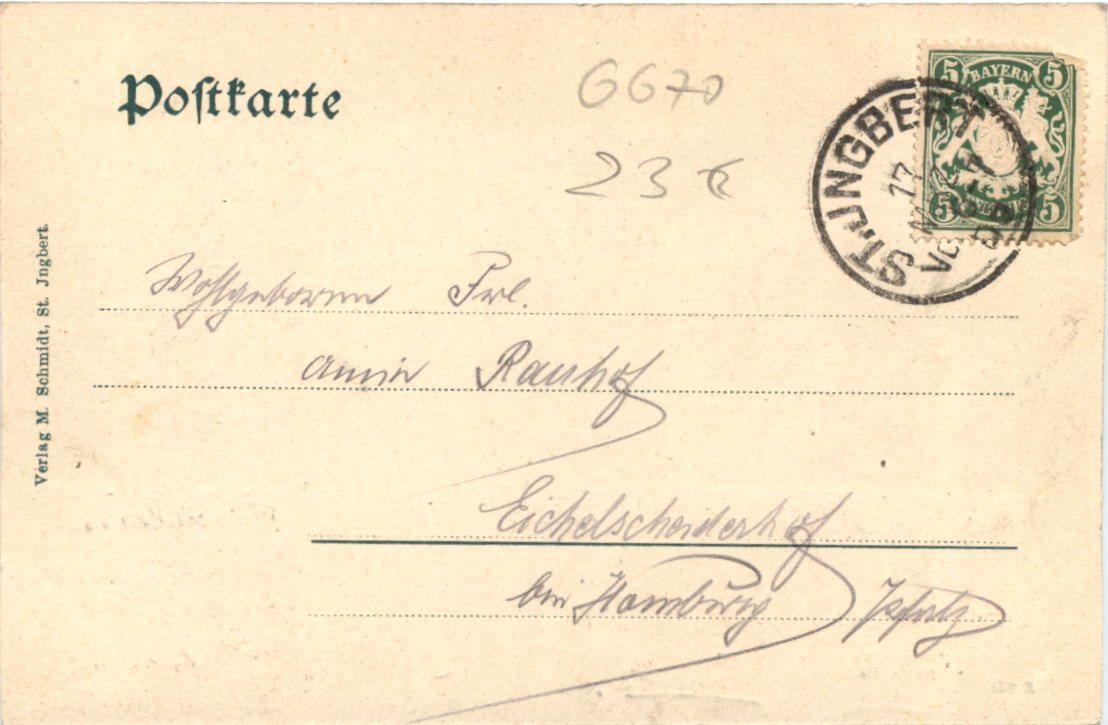 Poſtkarte
6670
23 €
5 BAYERN 5
5 5
ST. JNGBERT
17
Verlag M. Schmidt, St. Jngbert.
Wohlgeboren Frl.
Rauhof
Eichelscheiderhof
bei Homburg Pfalz